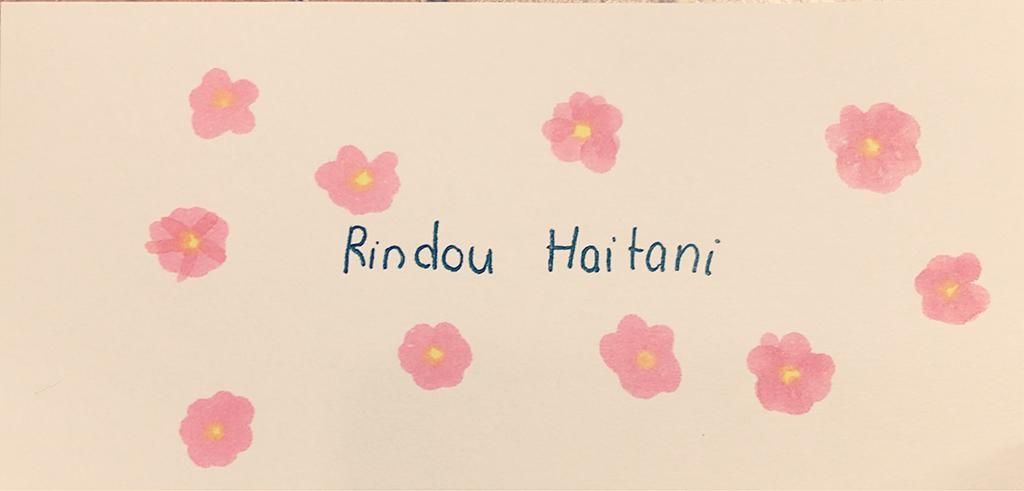 Rindou Haitani